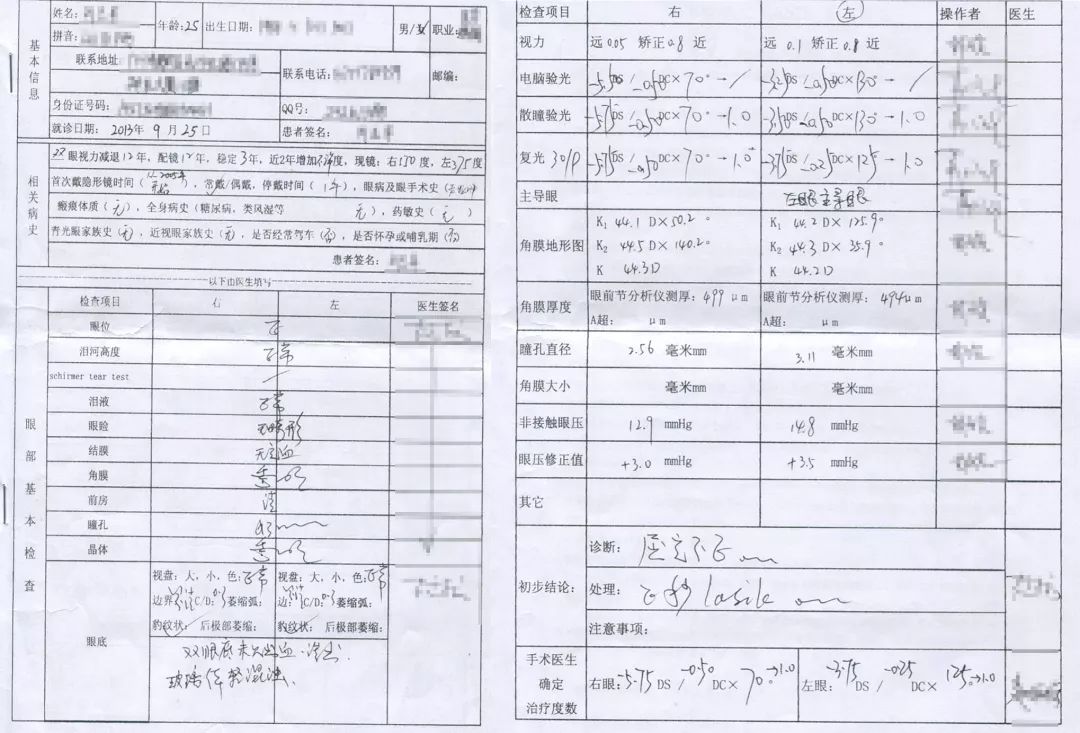 基本信息
姓名:
年龄:25
出生日期:
男/女
职业:
拼音:
联系地址:
联系电话:
邮编:
身份证号码:
QQ号:
就诊日期: 2013年 9 月 25 日
患者签名:
相关病史
眼视力减退12年, 配镜12年, 稳定3年, 近2年增加 度, 现镜: 右550度, 左375度
首次戴隐形镜时间( ), 常戴/偶戴, 停戴时间( 1年), 眼病及眼手术史(
瘢痕体质(无), 全身病史(糖尿病, 类风湿等 无), 药敏史(无)
青光眼家族史(无), 近视眼家族史(无), 是否经常驾车(否), 是否怀孕或哺乳期(否)
患者签名:
以下由医生填写
眼部基本检查
检查项目 右 左 医生签名
眼位 正
泪河高度 正常
schirmer tear test
泪液 正常
眼睑 无畸形
结膜 无充血
角膜 透明
前房 清
瞳孔
晶体 透明
眼底
视盘: 大, 小, 色:正常 视盘: 大, 小, 色:正常
边界:清 C/D:0.3 萎缩弧: 边界:清 C/D:0.3 萎缩弧:
豹纹状: 后极部萎缩: 豹纹状: 后极部萎缩:
双眼底未见出血、渗出
玻璃体轻混浊
检查项目 右 左 操作者 医生
视力 远 0.05 矫正 0.8 近 远 0.1 矫正 0.8 近
电脑验光 -5.50DS/-0.50DC×70°→/ -3.25DS/-0.50DC×130°→/
散瞳验光 -5.75DS/-0.50DC×70°→1.0 -3.50DS/-0.50DC×130°→1.0
复光 -5.75DS/-0.50DC×70°→1.0⁺ -3.75DS/-0.25DC×125°→1.0
主导眼 左眼主导眼
角膜地形图
K₁ 44.1 D×50.2° K₁ 44.2 D×125.9°
K₂ 44.5 D×140.2° K₂ 44.3 D×35.9°
K 44.3D K 44.2D
角膜厚度
眼前节分析仪测厚: 499 μm 眼前节分析仪测厚: 494μm
A超: μm A超: μm
瞳孔直径 2.56 毫米mm 3.11 毫米mm
角膜大小 毫米mm 毫米mm
非接触眼压 12.9 mmHg 14.8 mmHg
眼压修正值 +3.0 mmHg +3.5 mmHg
其它
初步结论:
诊断: 屈光不正
处理: 飞秒 lasik
注意事项:
手术医生
确定
治疗度数
右眼:-5.75 DS / -0.50 DC× 70°→1.0 左眼: -3.75 DS / -0.25 DC× 125°→1.0